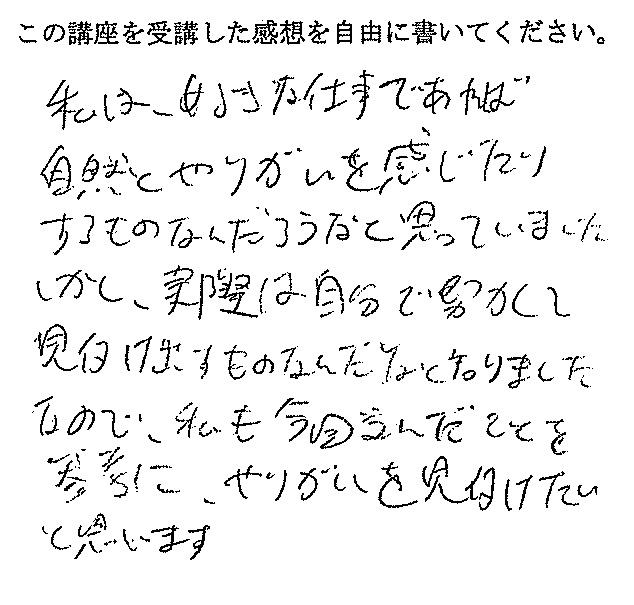 この講座を受講した感想を自由に書いてください。
私は、好きな仕事であれば
自然とやりがいを感じたり
するものなんだろうなと思っていました
しかし、実際は自分で努力して
見付け出すものなんだなと知りました
なので、私も今回学んだことを
参考に、やりがいを見付けたい
と思います